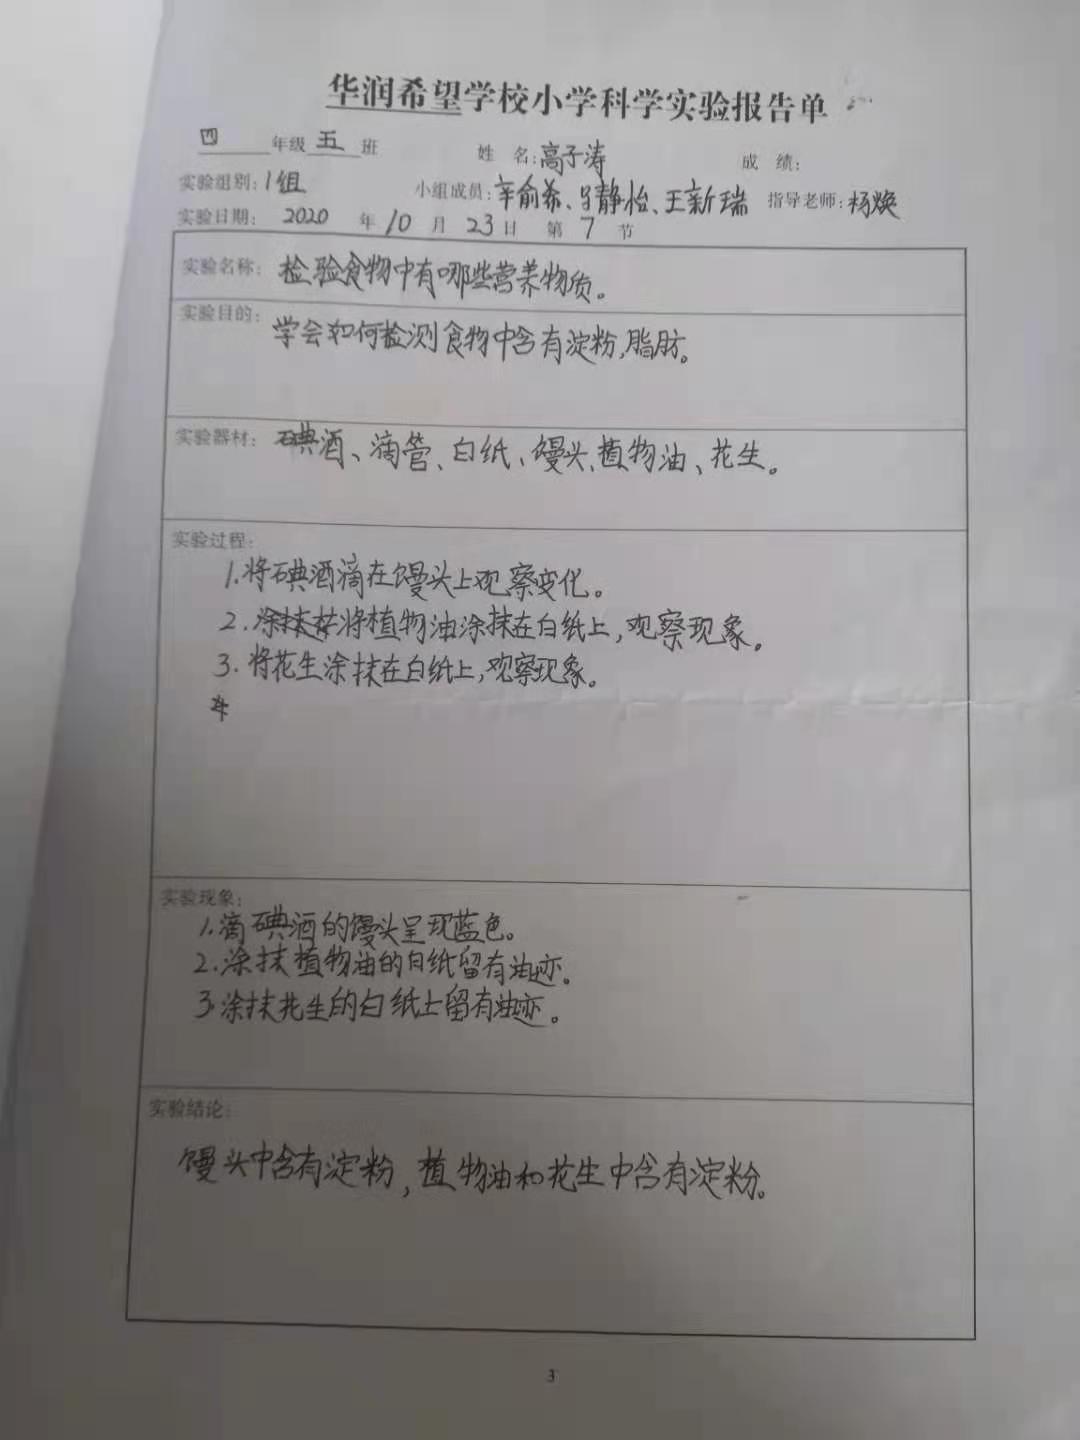 华润希望学校小学科学实验报告单
四年级五班 姓 名:高子涛 成 绩:
实验组别:1组 小组成员:辛俞希、马静怡、王新瑞 指导老师:杨焕
实验日期: 2020 年 10 月 23 日 第 7 节
实验名称: 检验食物中有哪些营养物质。
实验目的: 学会如何检测食物中含有淀粉,脂肪。
实验器材: 碘酒、滴管、白纸、馒头、植物油、花生。
实验过程:
1.将碘酒滴在馒头上观察变化。
2.将植物油涂抹在白纸上,观察现象。
3.将花生涂抹在白纸上,观察现象。
实验现象:
1.滴碘酒的馒头呈现蓝色。
2.涂抹植物油的白纸留有油迹。
3.涂抹花生的白纸上留有油迹。
实验结论:
馒头中含有淀粉,植物油和花生中含有淀粉。
3